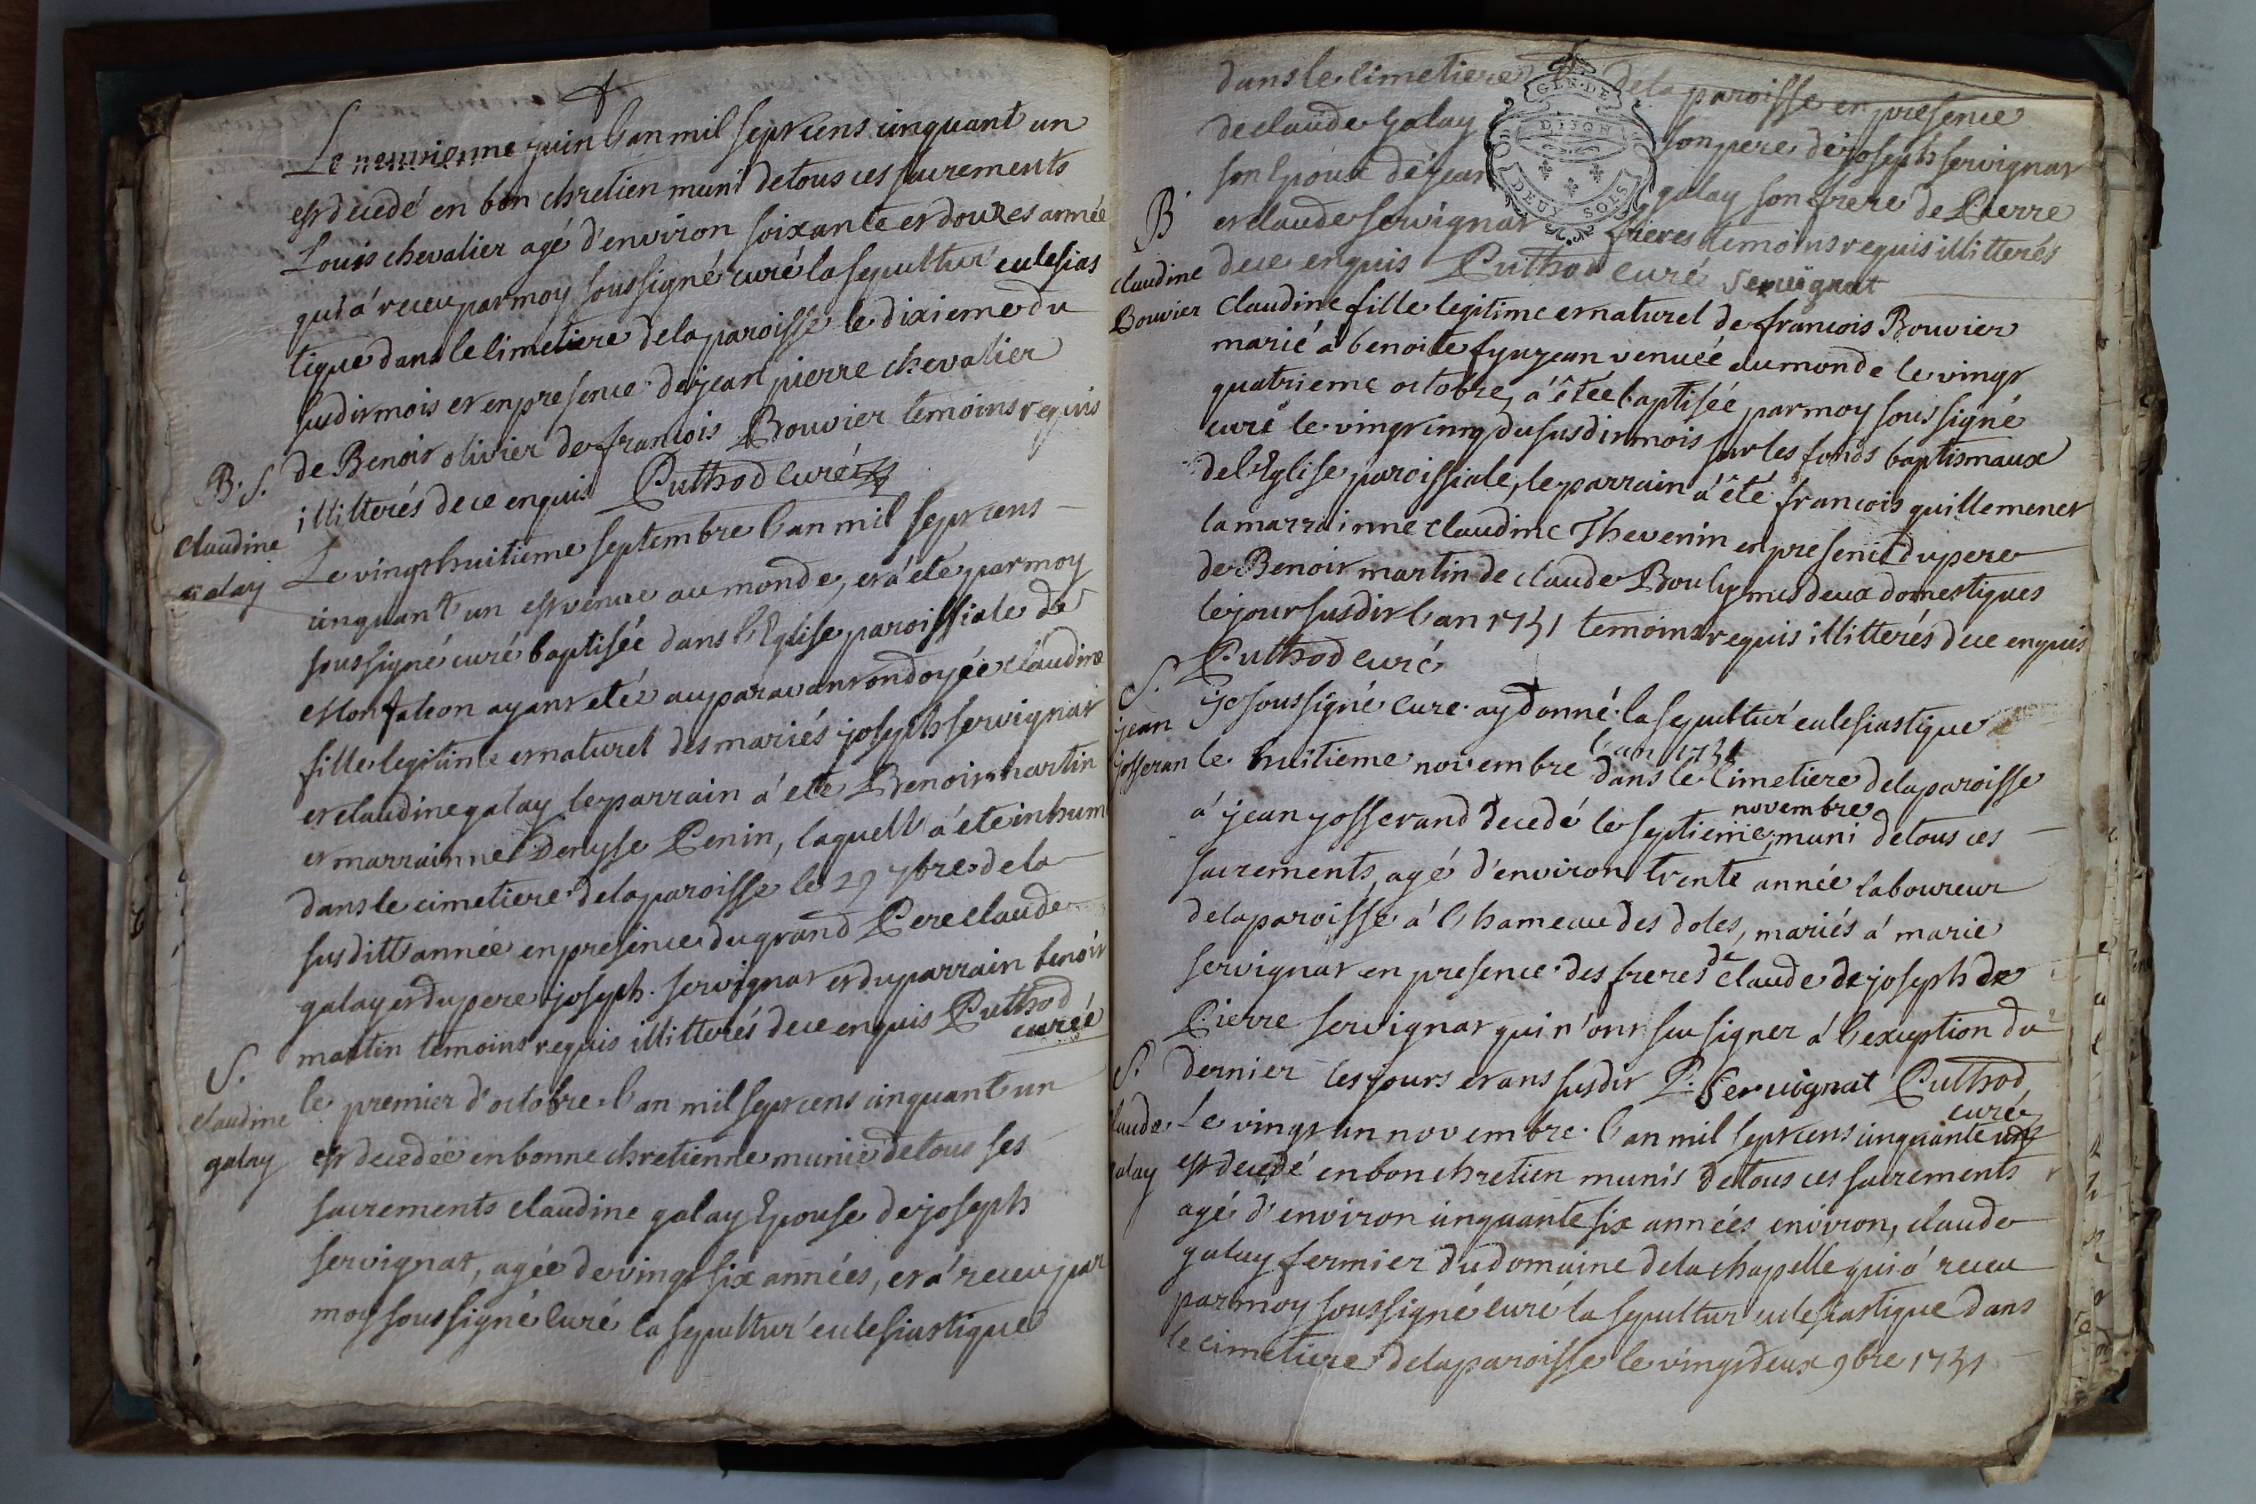 Le neuvienne juin l'an mil septcens cinquant un
est decedé en bon chretien muni de tous ces sacrements
Louis chevalier agé d'environ soixante et douzes année
qui a' receu par moy soussigné curé la sepultur' eclesias
tique dans le cimetiere de la paroisse le dixieme du
susdit mois et en presence de jean pierre chevalier
de Benoit olivier de francois Bouvier temoins requis
illitterés de ce enquis Puthod curé
B. S.
claudine
galay
Le vingt huitieme septembre l'an mil septcens
cinquant un est venue au monde, et a' eté par moy
soussigné curé baptisée dans l'Eglise paroissiale de
ayant etée auparavant ondoyée claudine
fille legitime et naturel des mariés joseph servignat
et claudine galay le parrain a' eté Benoit martin
et marrainne Denyse Penin, laquell a' eté inhum
dans le cimetiere de la paroisse le 29 7bre de la
susditt année en presence du grand Pere claude
galay et du pere joseph servignat et du parrain benoit
martin temoins requis illitterés de ce enquis Puthod
curé
S.
claudine
galay
le premier d'octobre l'an mil septcens cinquant un
est decedée en bonne chretienne munie de tous ses
sacrements claudine galay Epouse de joseph
servignat, agée de vingt six années, et a' receu par
moy soussigné curé la sepultur' eclesiastique
dans le cimetiere de la paroisse en presence
GEN. DE
DIJON
DEUX SOLS
de claude galay son pere de joseph servignat
son Epoux de jean galay son frere de Pierre
et claude servignat freres temoins requis illitterés
de ce enquis Puthod curé Servignat
B
claudine
Bouvier
claudine fille legitime et naturel de francois Bouvier
marié a benoite venuée au monde le vingt
quatrieme octobre, a' etée baptisée par moy soussigné
curé le vingt cinq du susdit mois sur les fonds baptismaux
de l'Eglise paroissiale, le parrain a' eté francois guillemenet
la marrainne claudine Thevenin en presence du pere
de Benoit martin de claude Bouly mes deux domestiques
le jour susdit l'an 1751 temoins requis illitterés de ce enquis
Puthod curé
S.
jean
josseran
je soussigné curé ay donné la sepultur' eclesiastique
l'an 1751
le huitieme novembre dans le cimetiere de la paroisse
novembre
a' jean josserand decedé le septieme, muni de tous ces
sacrements, agé d'environ trente année laboureur
de la paroisse a' l'hameau des doles, mariés a' marie
servignat en presence des freres de claude de joseph de
Pierre servignat qui n'ont scu signer a' l'exception du
dernier les jours et ans susdit P. Servignat Puthod
curé
S.
claude
galay
Le vingt un novembre l'an mil septcens cinquante un
est decedé en bon chretien munis de tous ces sacrements
agé d'environ cinquante six années environ, claude
galay fermier du domaine de la chapelle qui a' receu
par moy soussigné curé la sepultur eclesiastique dans
le cimetiere de la paroisse le vingt deux 9bre 1751